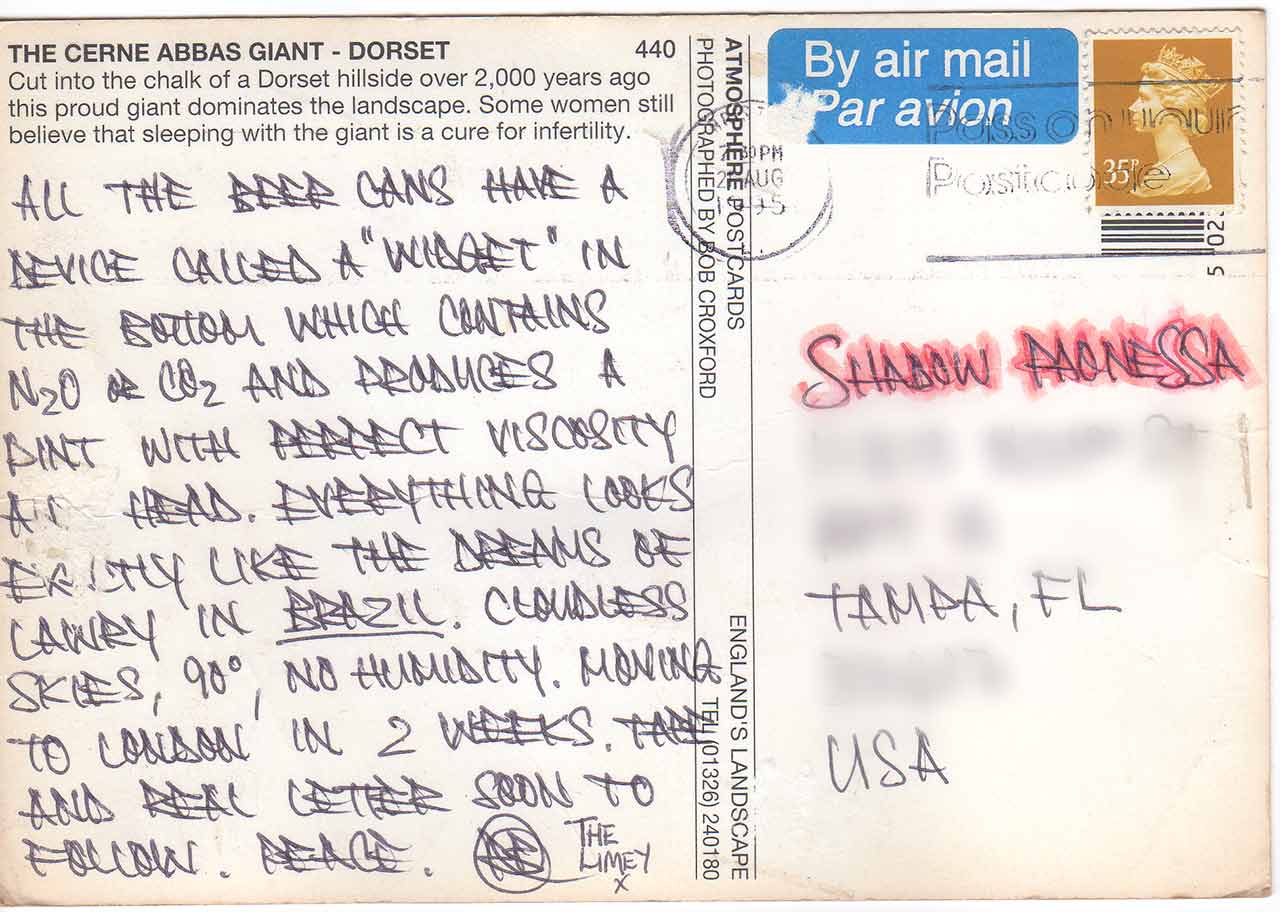 THE CERNE ABBAS GIANT - DORSET 440
Cut into the chalk of a Dorset hillside over 2,000 years ago
this proud giant dominates the landscape. Some women still
believe that sleeping with the giant is a cure for infertility.
ALL THE BEER CANS HAVE A
DEVICE CALLED A "WIDGET" IN
THE BOTTOM WHICH CONTAINS
N2O OR CO2 AND PRODUCES A
PINT WITH PERFECT VISCOSITY
HEAD. EVERYTHING LOOKS
LIKE THE DREAMS OF
LAWRY IN BRAZIL. CLOUDLESS
SKIES, 90°, NO HUMIDITY. MOVING
TO LONDON IN 2 WEEKS. TAPE
AND REAL LETTER SOON TO
FOLLOW. PEACE.
THE
LIMEY
X
ATMOSPHERE POSTCARDS
PHOTOGRAPHED BY BOB CROXFORD
ENGLAND'S LANDSCAPE
TEL (01326) 240180
By air mail
Par avion
PM
AUG
35P
5 02
SHADOW PAONESSA
TAMPA, FL
USA